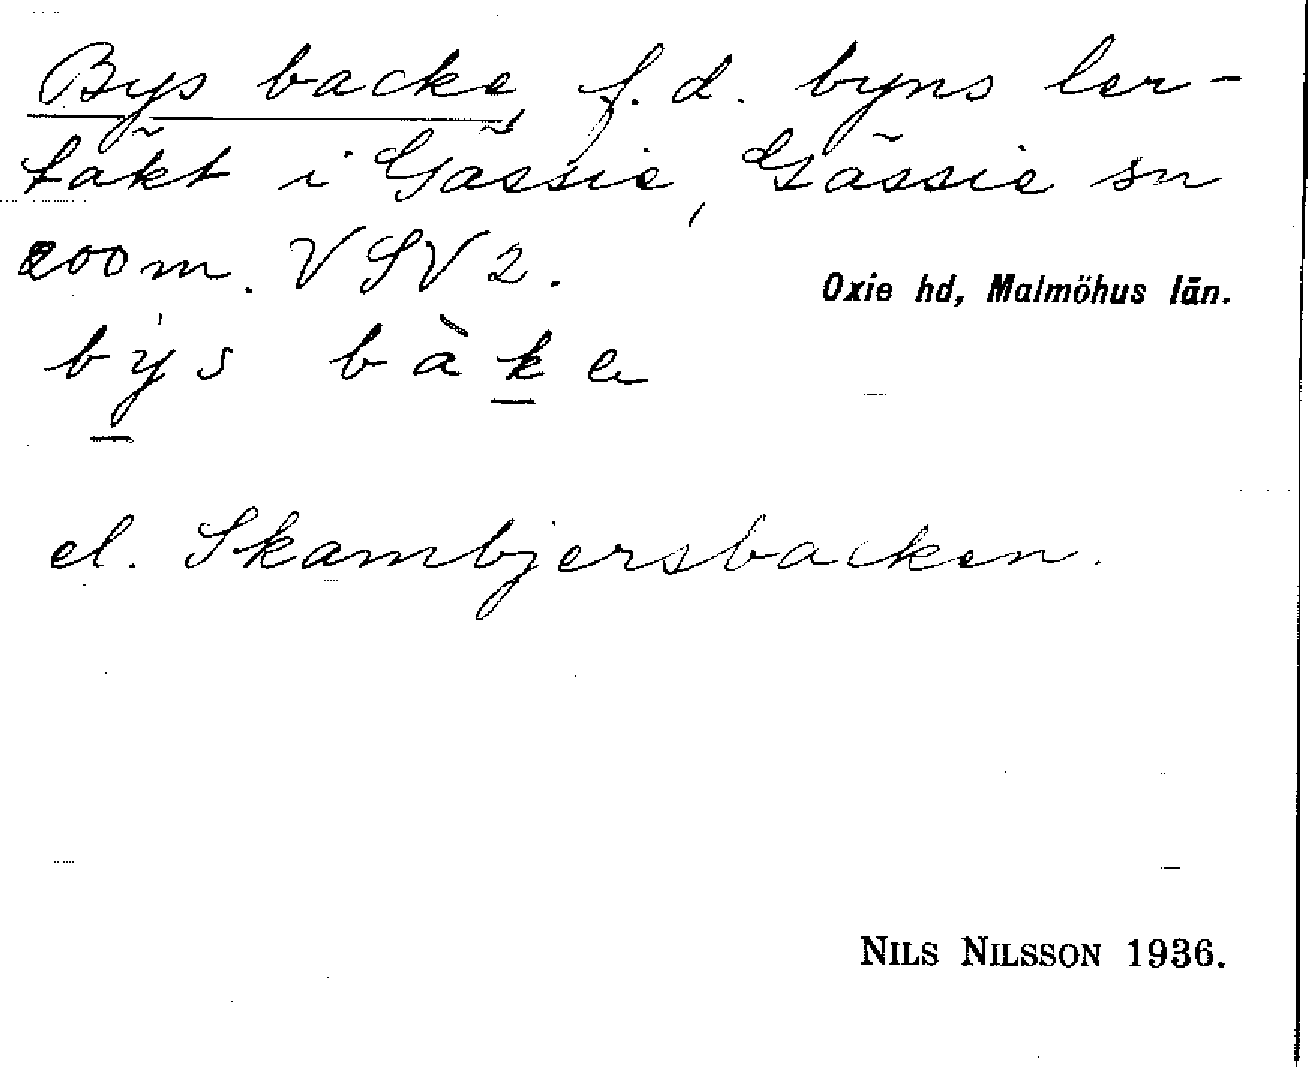 Bys backe, f.d. byns ler-
täkt i Gässie, Gässie sn
200m. VSV 2.
Oxie hd, Malmöhus län.
býs bàke
el. Skambjersbacken.
NILS NILSSON 1936.